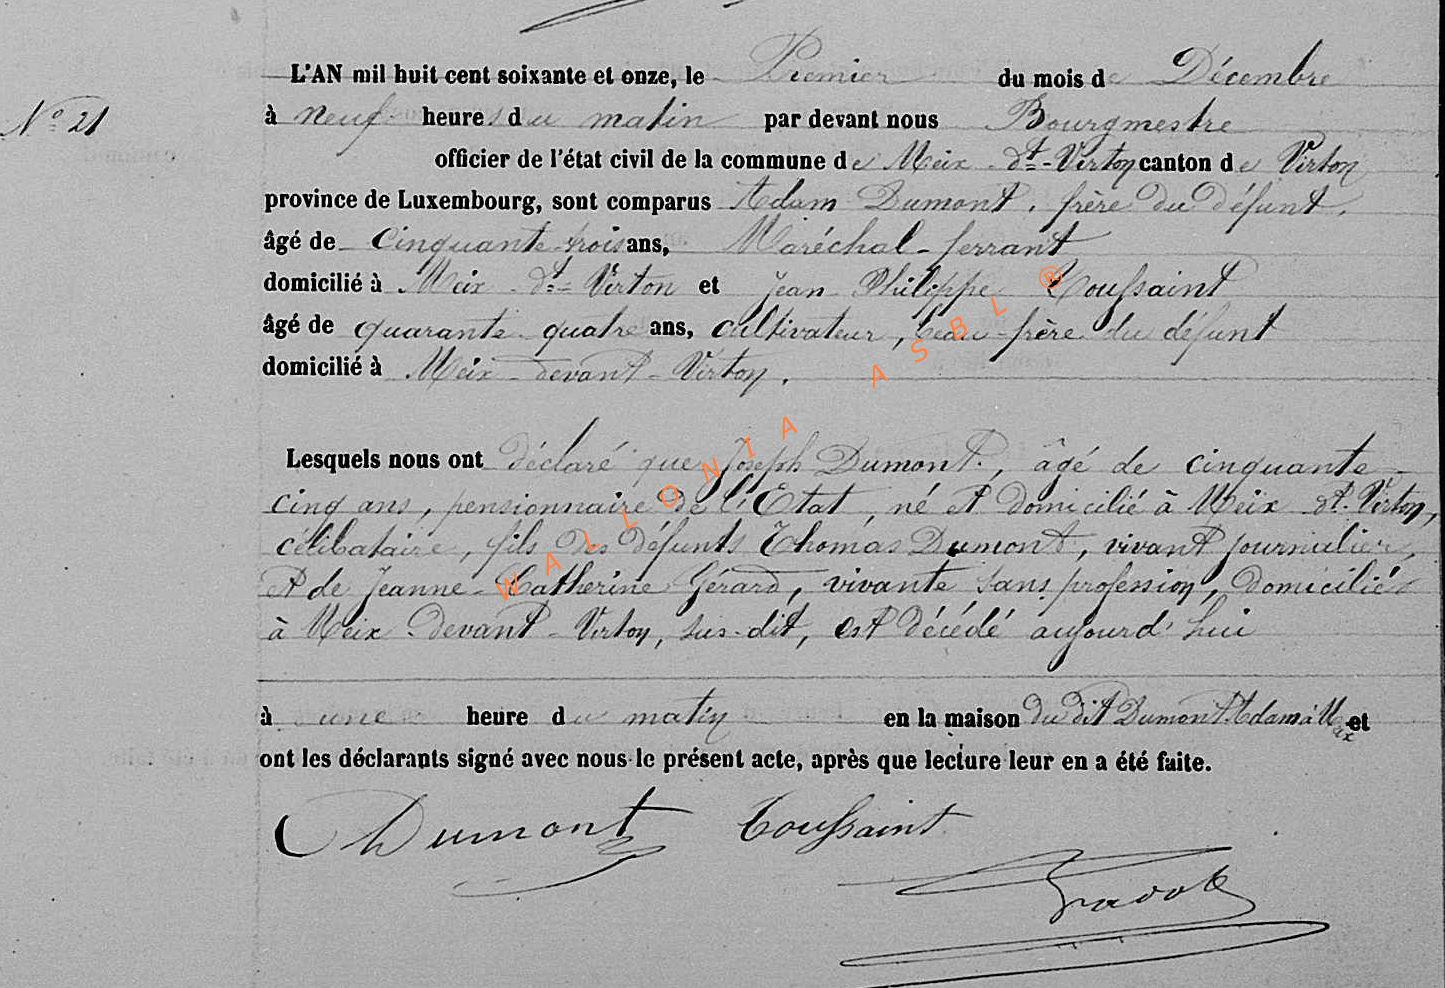 L'AN mil huit cent soixante et onze, le Premier du mois de Décembre
N° 21
à neuf heures du matin par devant nous Bourgmestre
officier de l'état civil de la commune de Meix - dt - Virton canton de Virton
province de Luxembourg, sont comparus Adam Dumont, frère du défunt,
âgé de cinquante-trois ans, Maréchal-ferrant
domicilié à Meix - dt - Virton et Jean Philippe Toussaint
âgé de quarante quatre ans, cultivateur, beau-frère du défunt
domicilié à Meix-devant-Virton.
Lesquels nous ont déclaré que Joseph Dumont, âgé de cinquante-
cinq ans, pensionnaire de l'Etat, né et domicilié à Meix dt. Virton,
célibataire, fils des défunts Thomas Dumont, vivant journalier,
et de Jeanne-Catherine Gérard, vivante sans profession, domiciliés
à Meix-devant-Virton, sus-dit, est décédé aujourd'hui
à une heure du matin en la maison du dit Dumont Adam à Meix et
ont les déclarants signé avec nous le présent acte, après que lecture leur en a été faite.
Dumont Toussaint
WALLONIA ASBL ®